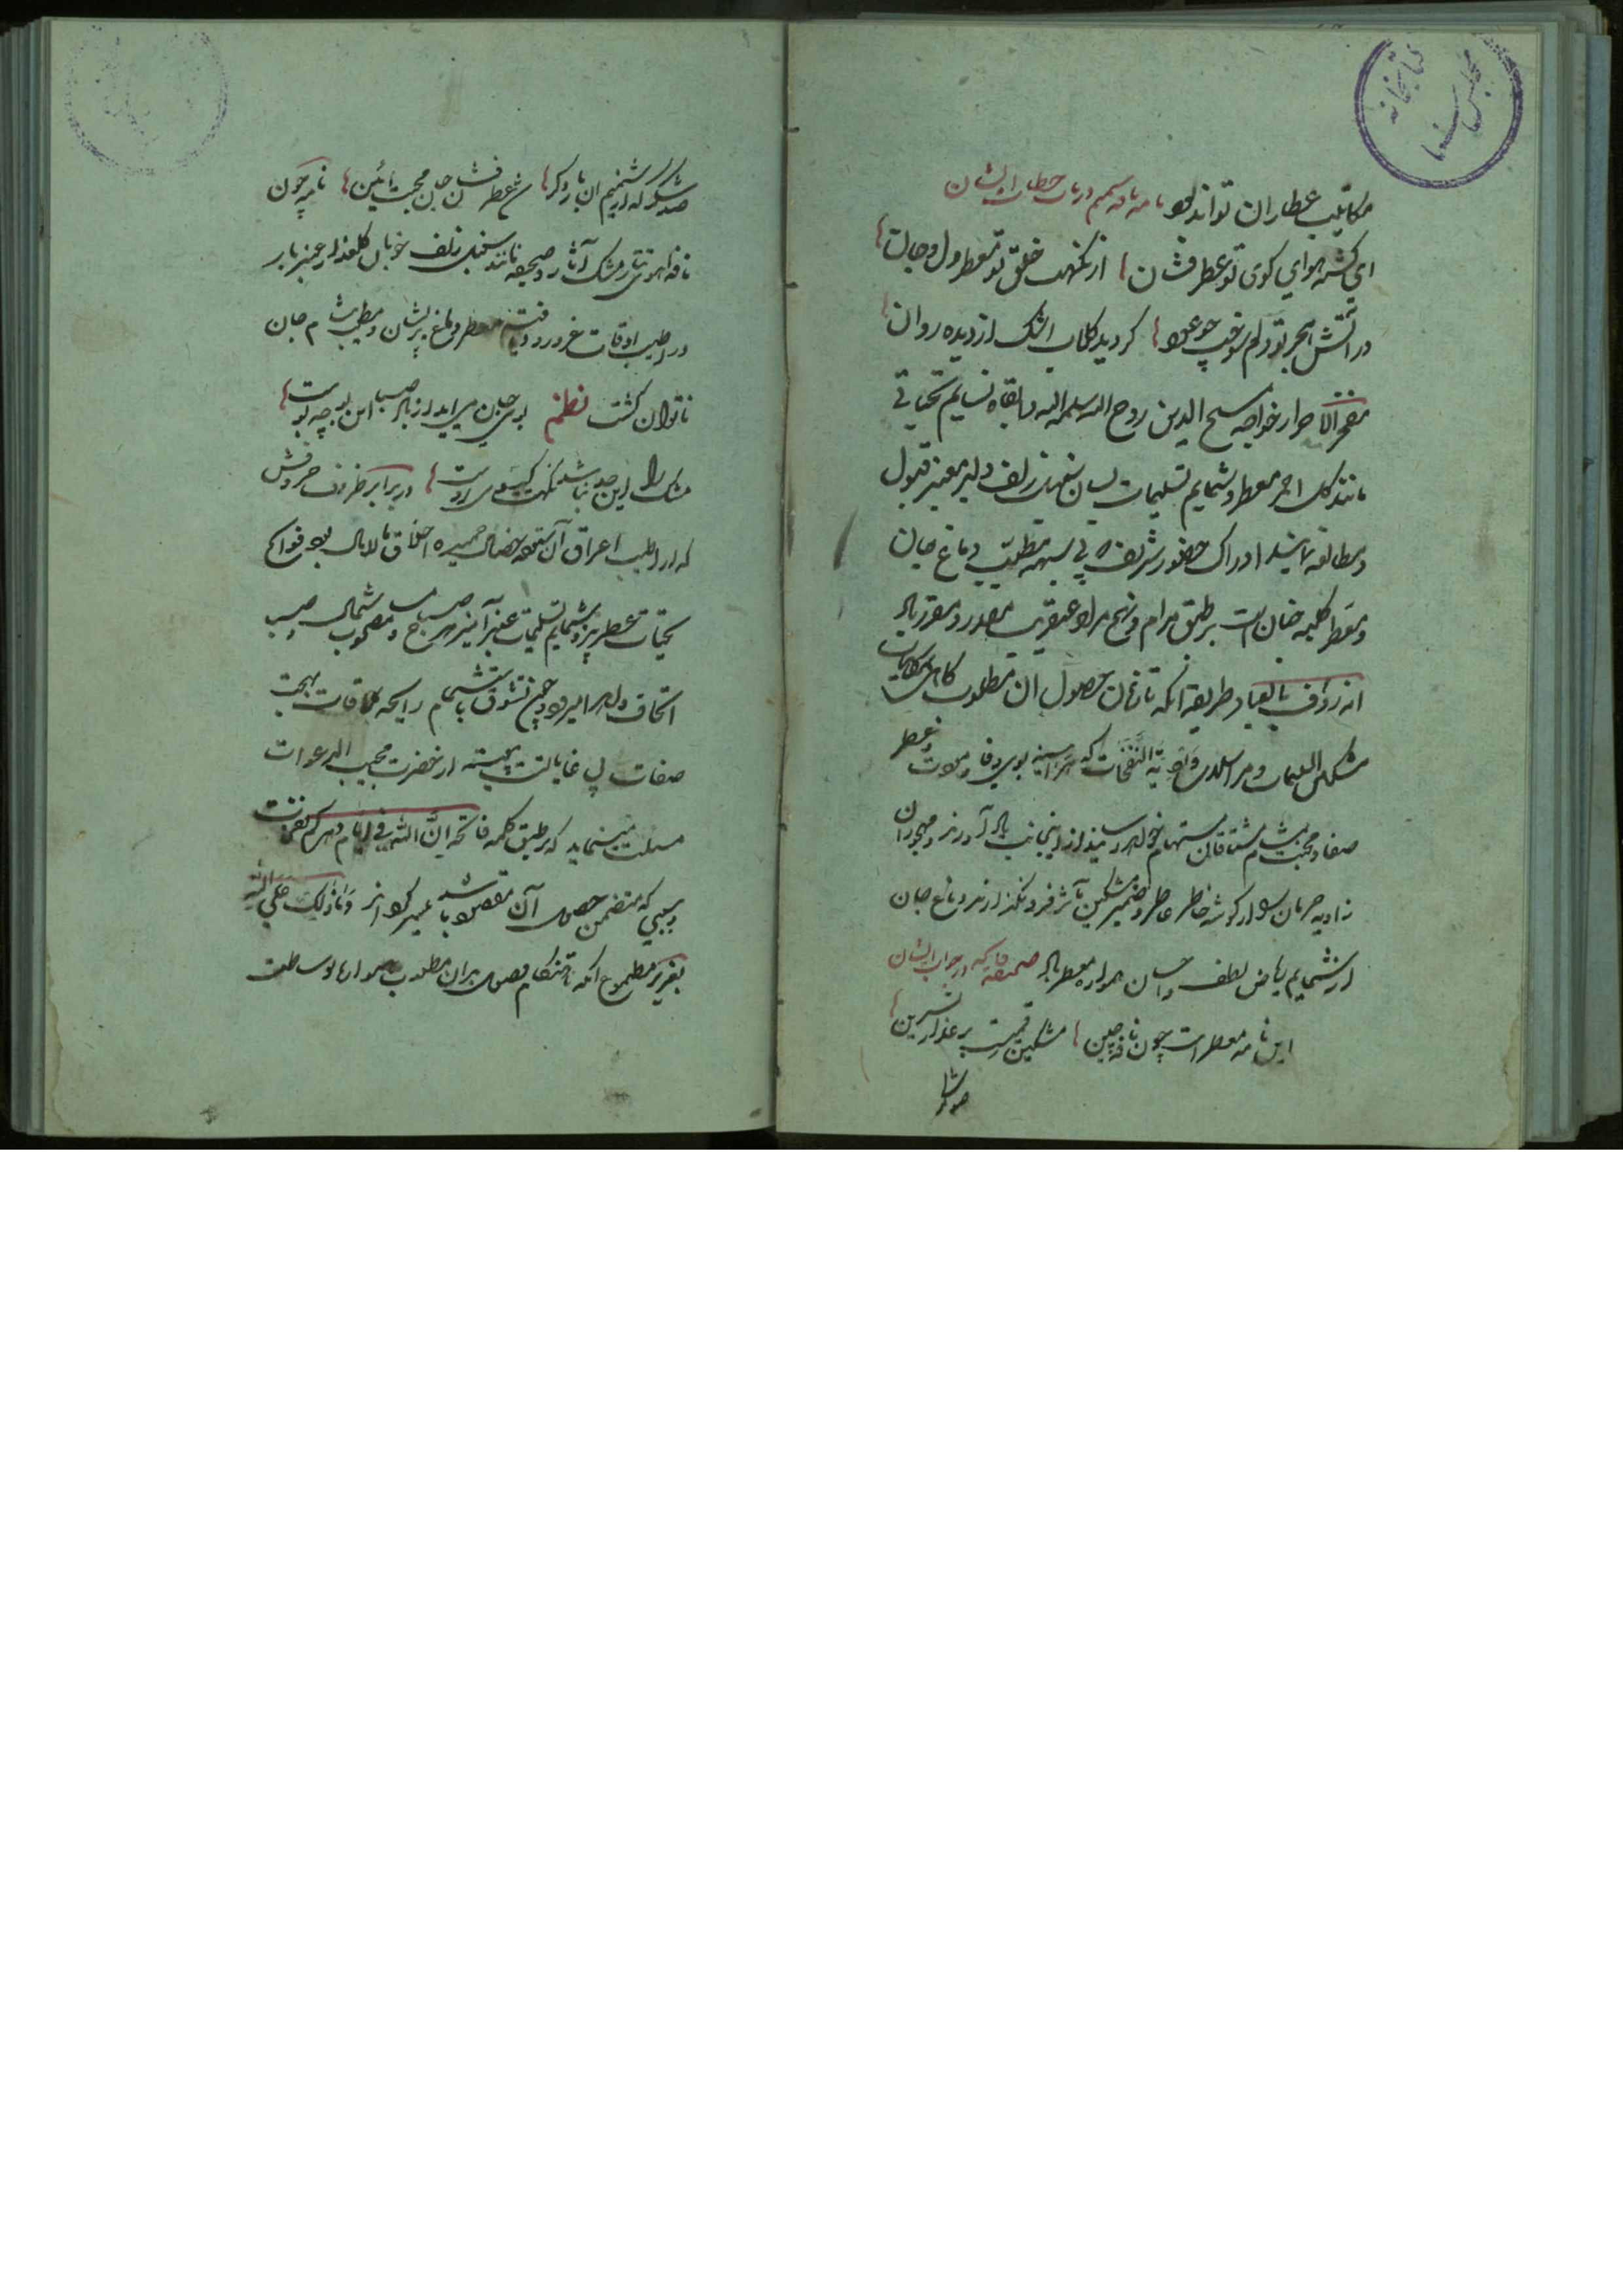 کتابخانه
مجلس سنا
مکاتیب عطاران تواند بود نامه نامیسیم در باب خطاب ایشان
ای گشته هوای کوی تو عطرفشان از نکهت خلق تو معطر دل و جان
در آتش هجر تو دلم سوخت چو عود گردید گلاب اشک از دیده روان
مفخر الاحرار خواجه مسیح الدین روح الله سلمه الله و ابقاه نسایم تحیاتی
مانند گل احمر معطر و شمایم تسلیمات بسان زلف دلبر معنبر قبول
و مطالعه نمایند ادراک حضور شریف پی شبهه مطیب دماغ جان
و معطر کلبه جنان است بر طبق مرام و نهج مراد عنقریب مقدور و مقرر باد
انه رؤف بالعباد طریقه آنکه تا زمان حصول آن مطلوب گاهی بمکاتبات
مشکین السمات و مراسلات فایحة النفحات که هر آینه بوی وفا و مودت و عطر
صفا و محبت بمشام مشتاقان مستهام خواهد رسید ازینجانب یاد آورند و مهجوران
زاویه حرمان را از گوشه خاطر عاطر و ضمیر مشکین مآثر فرو نگذارند دماغ جان
از شمایم ریاض لطف و احسان همواره معطر باد صحیفه که در جواب ایشان
این نامه معطر است چون نافه چین مشکین رقمیست بر عذار نسرین
صد شکر
صد شکر که از شمیم آن بار دگر شد عطرفشان جان محبت آئین نامه چون
نافه آهوی تتار مشک آثار و صحیفه مانند سنبل زلف خوبان گلعذار عنبربار
در اطیب اوقات غرور دریافت معطر دماغ پریشان و مطیب مشام جان
ناتوان گشت نظم بوی جان میآید از باد صبا این بو چه بوست
مشک را این حد نباشد نکهت گیسوی اوست در برابر ظروف حروفش
که از اطیب اعراق آن ستوده خصال حمیده اخلاق مالامال بود فوایح
تحیات عطربیز و شمایم تسلیمات عنبرآمیز هر صباح و مسا مصحوب شمال و صبا
اتحاف و اهدا میرود و چون تشوق باستشمام رایحه ملاقات بهجت
صفات بی غایات است پیوسته از حضرت مجیب الدعوات
مسئلت مینماید که بر طبق کلمه فاتحه ان لله فی ایام دهرکم نفحات
و سببی که متضمن حصول آن مقصود باشد میسر گرداند و ما ذلک علی الله
بعزیز مطموح آنکه تا هنگام وصول بدان مطلوب همواره بوساطت